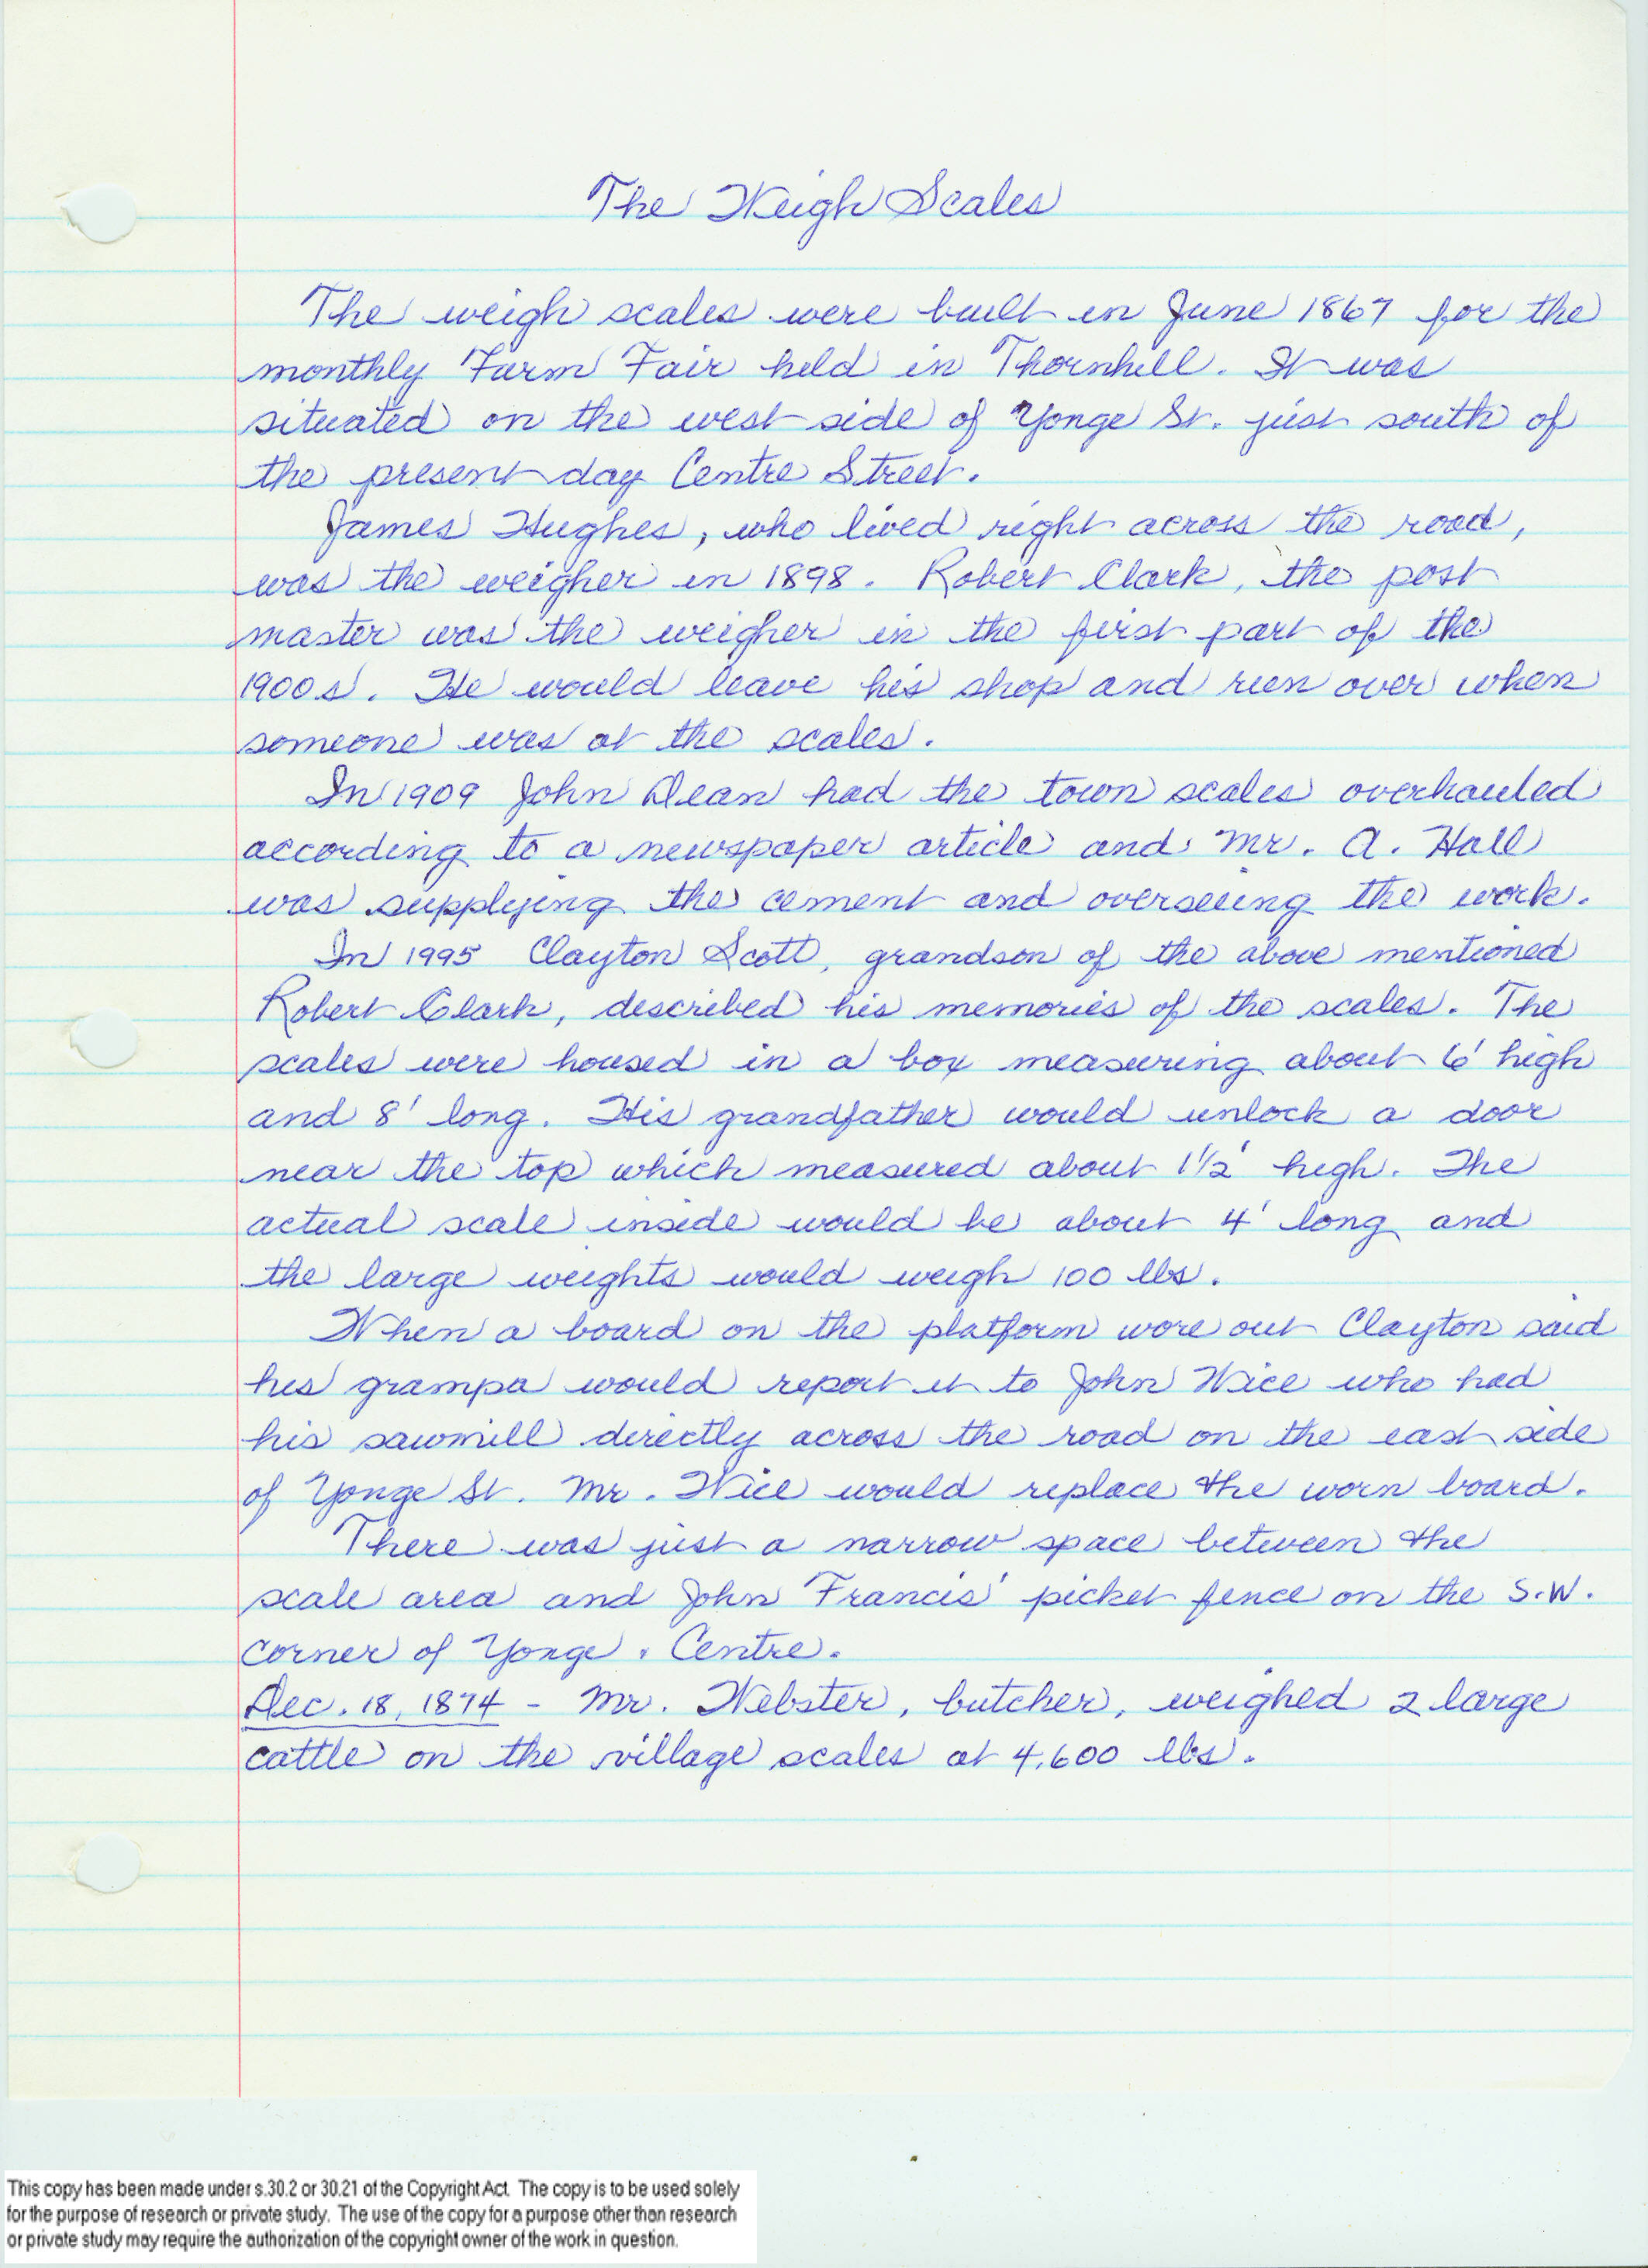 The Weigh Scales
The weigh scales were built in June 1867 for the
monthly Farm Fair held in Thornhill. It was
situated on the west side of Yonge St. just south of
the present day Centre Street.
James Hughes, who lived right across the road,
was the weigher in 1898. Robert Clark, the post
master was the weigher in the first part of the
1900s. He would leave his shop and run over when
someone was at the scales.
In 1909 John Dean had the town scales overhauled
according to a newspaper article and Mr. A. Hall
was supplying the cement and overseeing the work.
In 1995 Clayton Scott, grandson of the above mentioned
Robert Clark, described his memories of the scales. The
scales were housed in a box measuring about 6' high
and 8' long. His grandfather would unlock a door
near the top which measured about 1½' high. The
actual scale inside would be about 4' long and
the large weights would weigh 100 lbs.
When a board on the platform wore out Clayton said
his grampa would report it to John Wice who had
his sawmill directly across the road on the east side
of Yonge St. Mr. Wice would replace the worn board.
There was just a narrow space between the
scale area and John Francis' picket fence on the S.W.
corner of Yonge & Centre.
Dec. 18, 1874 - Mr. Webster, butcher, weighed 2 large
cattle on the village scales at 4,600 lbs.
This copy has been made under s.30.2 or 30.21 of the Copyright Act. The copy is to be used solely
for the purpose of research or private study. The use of the copy for a purpose other than research
or private study may require the authorization of the copyright owner of the work in question.